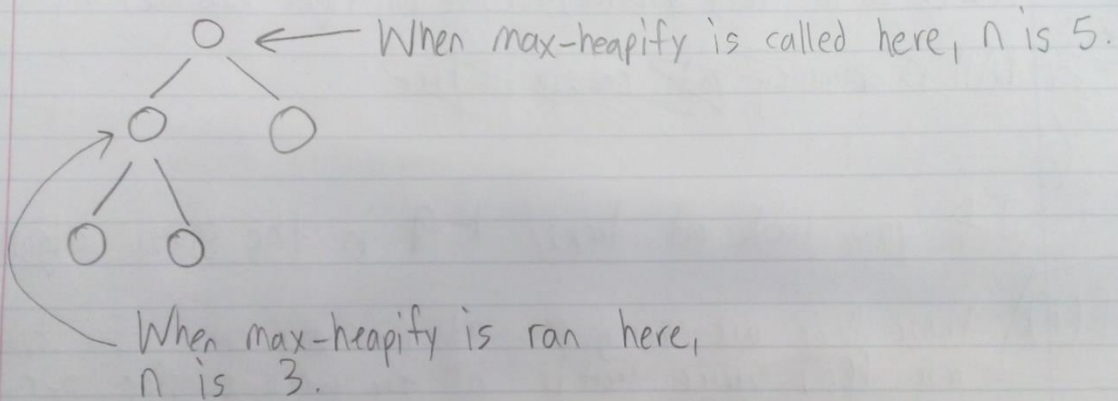 When max-heapify is called here, n is 5.
When max-heapify is ran here,
n is 3.